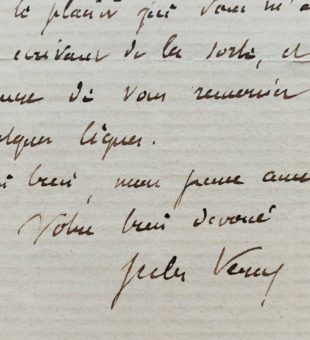 le plaisir que vous m'a
écrivant de la sorte, et
de vous remercier
lignes.
bien, mon jeune ami
Votre bien dévoué
Jules Verne